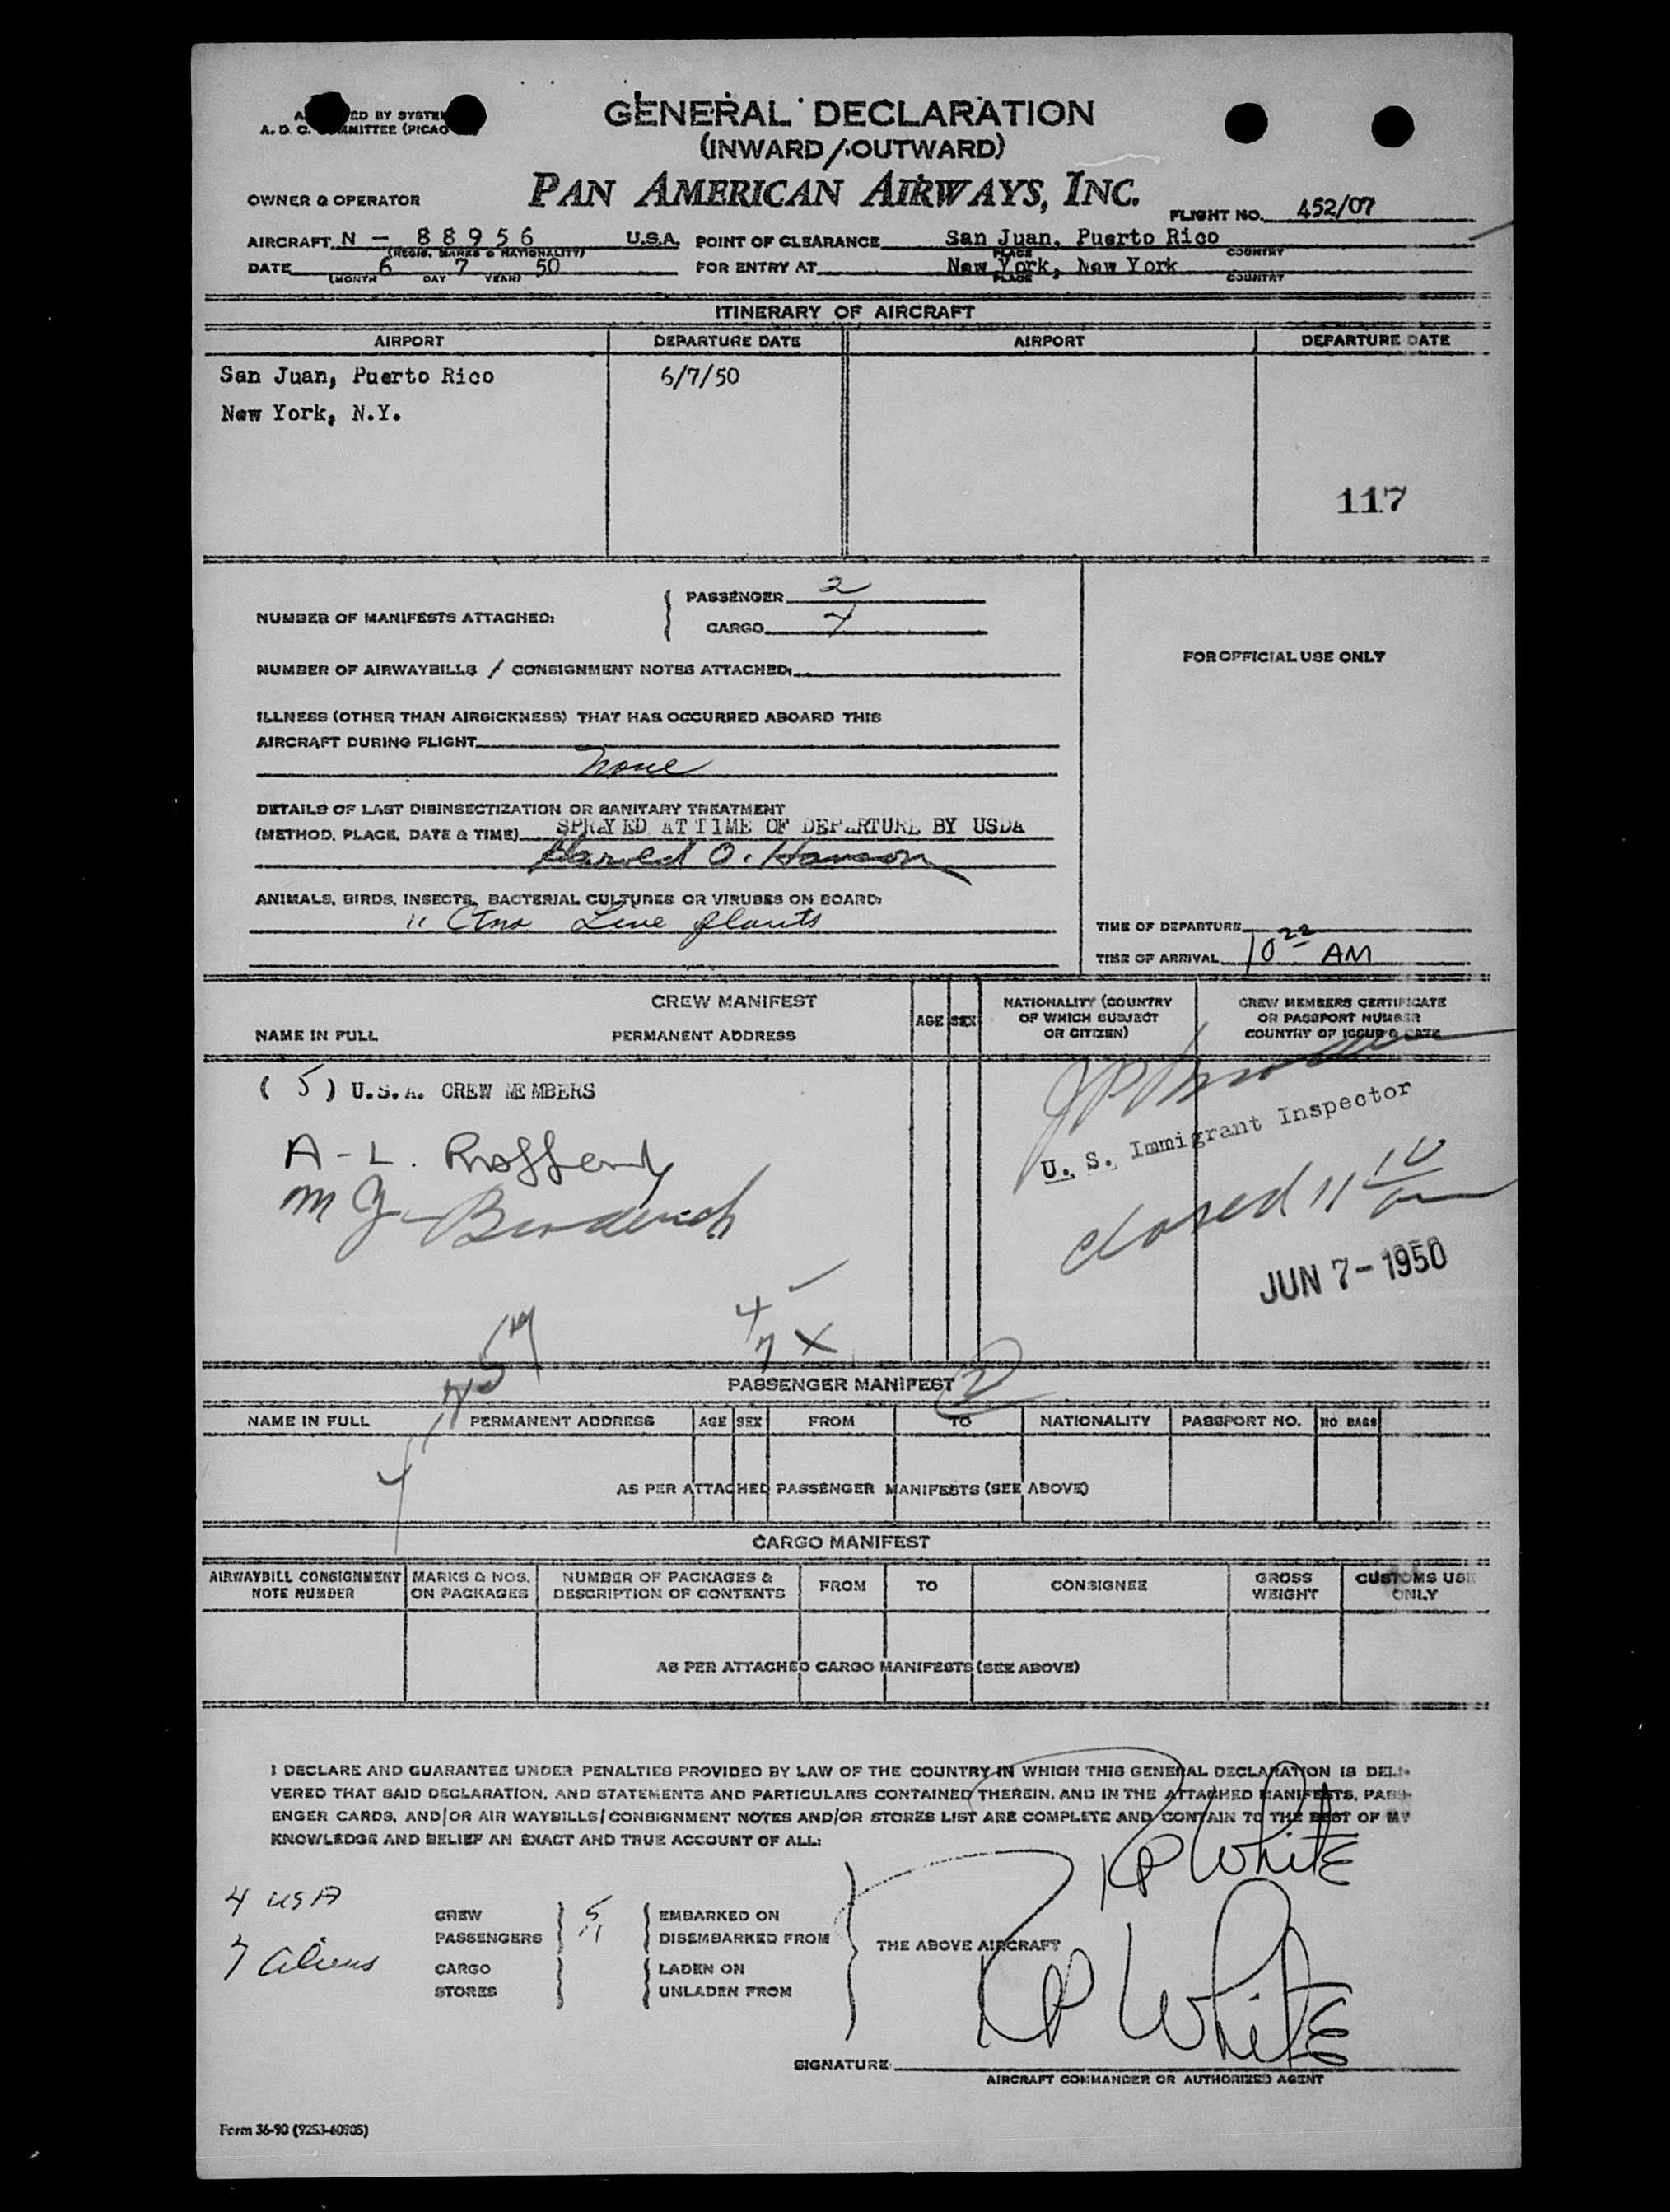 GENERAL DECLARATION
(INWARD/OUTWARD)
A. D. C. COMMITTEE (PICAO
OWNER & OPERATOR PAN AMERICAN AIRWAYS, INC.
FLIGHT NO. 452/07
AIRCRAFT N - 88956 U.S.A. POINT OF CLEARANCE San Juan, Puerto Rico
(REGIS. MARKS & NATIONALITY) PLACE COUNTRY
DATE 6 7 50 FOR ENTRY AT New York, New York
(MONTH DAY YEAR) PLACE COUNTRY
ITINERARY OF AIRCRAFT
AIRPORT DEPARTURE DATE AIRPORT DEPARTURE DATE
San Juan, Puerto Rico 6/7/50
New York, N.Y.
117
NUMBER OF MANIFESTS ATTACHED: PASSENGER 2
CARGO 7
FOR OFFICIAL USE ONLY
NUMBER OF AIRWAYBILLS / CONSIGNMENT NOTES ATTACHED:
ILLNESS (OTHER THAN AIRSICKNESS) THAT HAS OCCURRED ABOARD THIS
AIRCRAFT DURING FLIGHT
None
DETAILS OF LAST DISINSECTIZATION OR SANITARY TREATMENT
(METHOD, PLACE, DATE & TIME) SPRAYED AT TIME OF DEPARTURE BY USDA
Harold O. Hanson
ANIMALS, BIRDS, INSECTS, BACTERIAL CULTURES OR VIRUSES ON BOARD:
11 Ctns Live plants
TIME OF DEPARTURE
TIME OF ARRIVAL 10 22 AM
CREW MANIFEST
NAME IN FULL PERMANENT ADDRESS AGE SEX NATIONALITY (COUNTRY OF WHICH SUBJECT OR CITIZEN) CREW MEMBERS CERTIFICATE OR PASSPORT NUMBER COUNTRY OF ISSUE & DATE
( 5 ) U.S.A. CREW MEMBERS
U. S. Immigrant Inspector
A-L. Rafferty
M J Broderick
closed 11 10
JUN 7 - 1950
4
7 X
PASSENGER MANIFEST 2
NAME IN FULL PERMANENT ADDRESS AGE SEX FROM TO NATIONALITY PASSPORT NO. NO. BAGS
AS PER ATTACHED PASSENGER MANIFESTS (SEE ABOVE)
CARGO MANIFEST
AIRWAYBILL CONSIGNMENT NOTE NUMBER MARKS & NOS. ON PACKAGES NUMBER OF PACKAGES & DESCRIPTION OF CONTENTS FROM TO CONSIGNEE GROSS WEIGHT CUSTOMS USE ONLY
AS PER ATTACHED CARGO MANIFESTS (SEE ABOVE)
I DECLARE AND GUARANTEE UNDER PENALTIES PROVIDED BY LAW OF THE COUNTRY IN WHICH THIS GENERAL DECLARATION IS DELI-
VERED THAT SAID DECLARATION, AND STATEMENTS AND PARTICULARS CONTAINED THEREIN, AND IN THE ATTACHED MANIFESTS, PASS-
ENGER CARDS, AND/OR AIR WAYBILLS/CONSIGNMENT NOTES AND/OR STORES LIST ARE COMPLETE AND CONTAIN TO THE BEST OF MY
KNOWLEDGE AND BELIEF AN EXACT AND TRUE ACCOUNT OF ALL:
KP White
4 USA
7 Aliens
CREW 5 EMBARKED ON
PASSENGERS 11 DISEMBARKED FROM
THE ABOVE AIRCRAFT
CARGO LADEN ON
STORES UNLADEN FROM
KP White
SIGNATURE
AIRCRAFT COMMANDER OR AUTHORIZED AGENT
Form 36-90 (9253-60505)